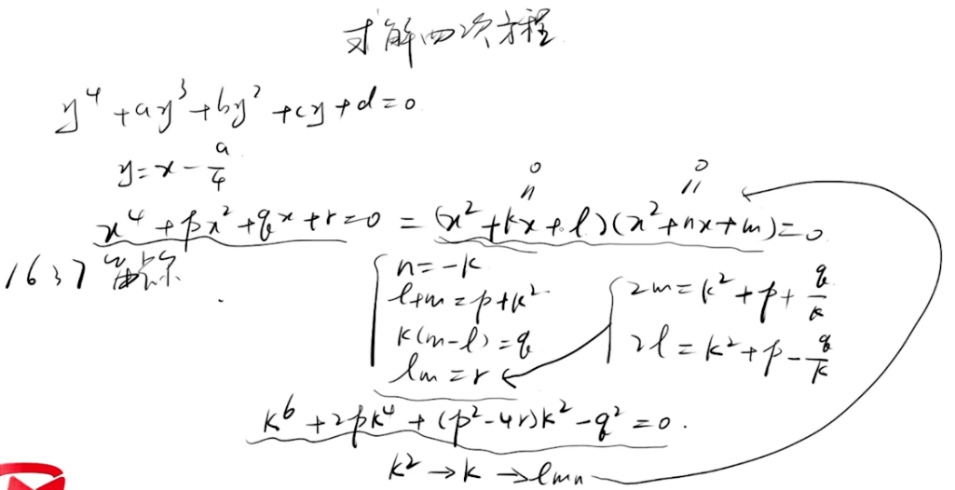 求解四次方程
y⁴+ay³+by²+cy+d=0
y=x-a/4
x⁴+px²+qx+r=0 = (x²+kx+l)(x²+nx+m)=0
0 = 0 =
1637 笛卡尔
n=-k
l+m=p+k²
k(m-l)=q
lm=r
2m=k²+p+q/k
2l=k²+p-q/k
k⁶+2pk⁴+(p²-4r)k²-q²=0.
k²→k→lmn